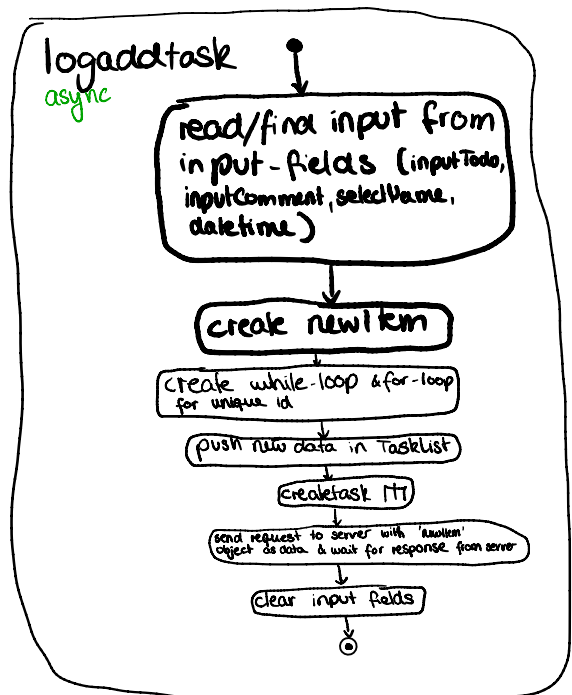 logaddtask
async
read/find input from
input-fields (inputTodo,
inputComment, selectName,
datetime)
create newItem
create while-loop & for-loop
for unique id
push new data in TaskList
createtask
send request to server with 'newItem'
object as data & wait for response from server
clear input fields